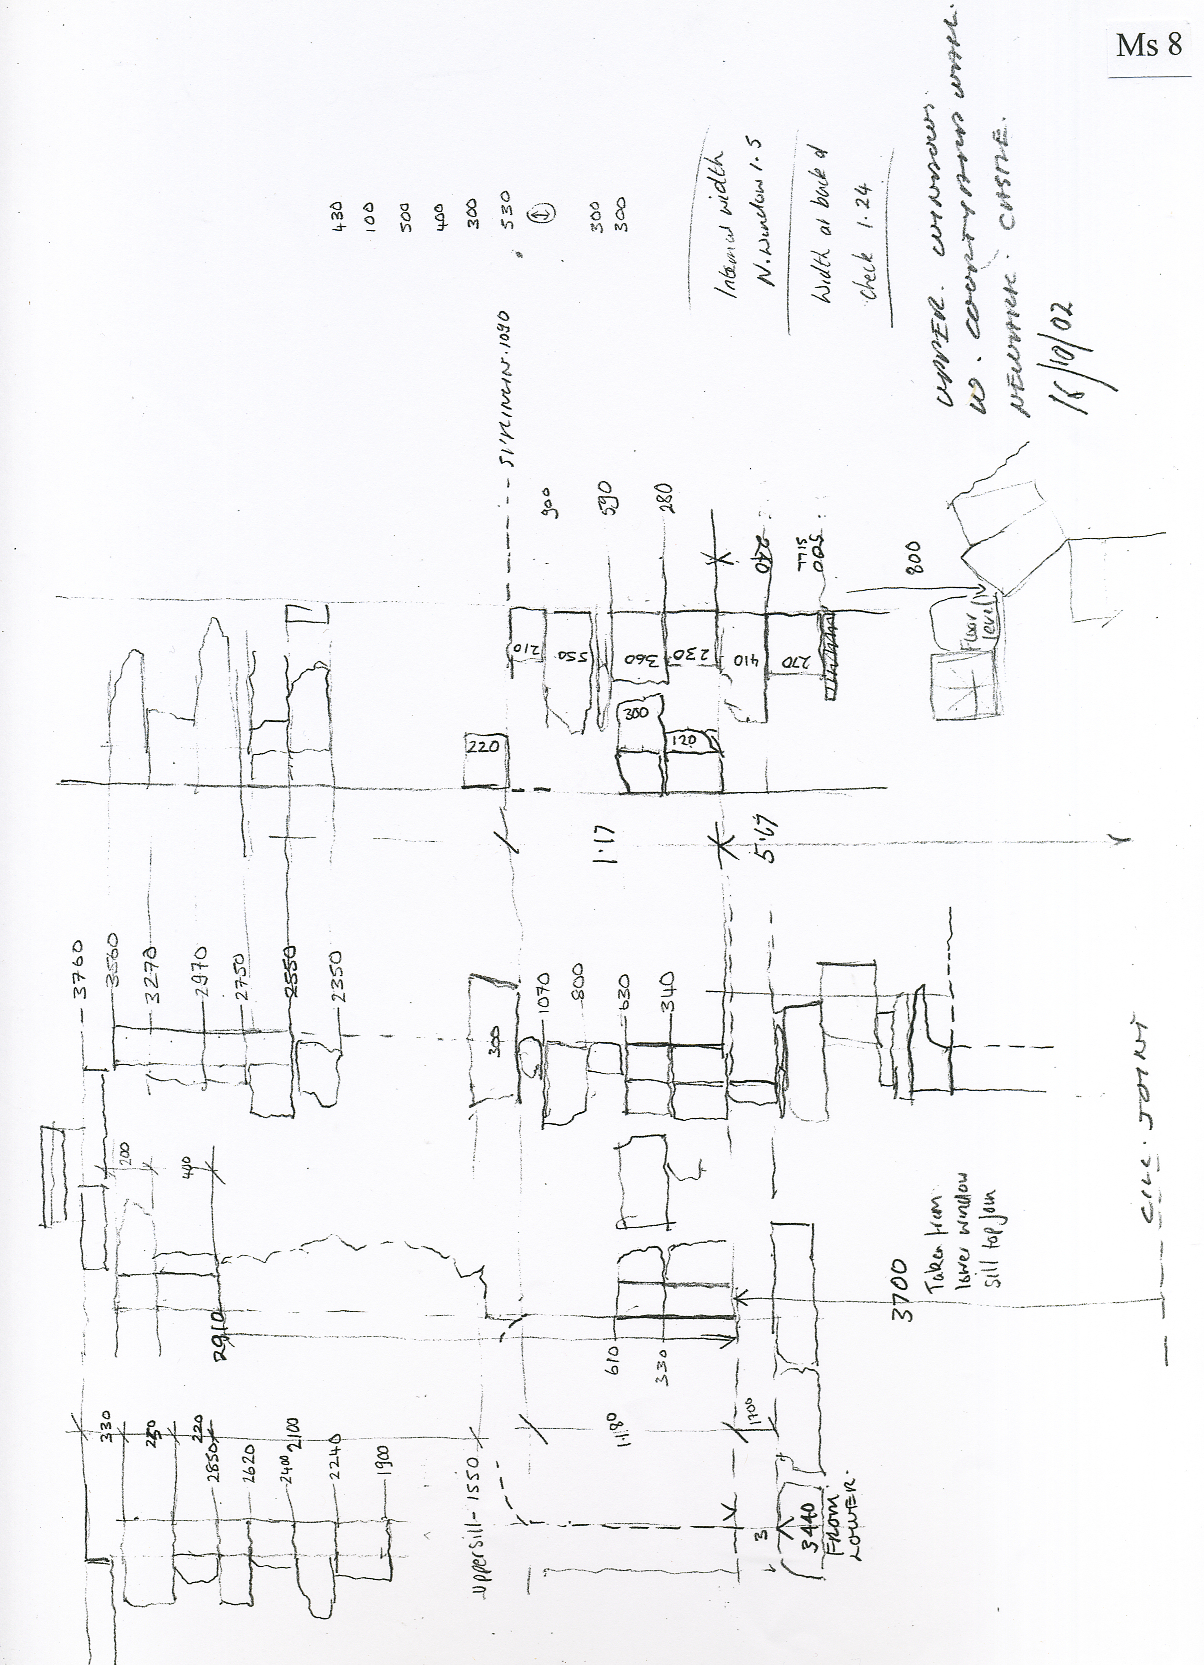 Ms 8
UPPER. WINDOWS.
W. COURTYARD WALL.
NEWARK. CASTLE.
16/10/02
Internal width
N. window 1.5
Width at back of
check 1.24
430
100
500
400
300
530
300
300
900
590
280
240
SILL
500
800
210
550
360
230
410
270
300
120
220
Floor
level
1.17
5.67
3760
3560
3270
2970
2750
2550
2350
300
1070
800
630
340
200
440
2910
610
330
3700
Taken from
lower window
sill top join
CILL. JOINT
330
250
220
2850
2620
2400
2100
2240
1900
Upper sill - 1550
1.180
1700
3
3440
FROM
LOWER.